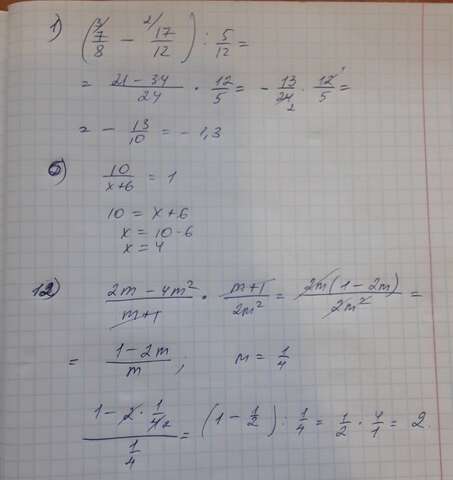 1) (3/ 7/8 - 2/ 17/12) : 5/12 =
= (21 - 34)/24 · 12/5 = - 13/24 2 · 12 1/5 =
= - 13/10 = - 1,3
5) 10/(x+6) = 1
10 = x + 6
x = 10 - 6
x = 4
12) (2m - 4m²)/(m+1) · (m+1)/2m² = 2m(1 - 2m)/2m² =
= (1 - 2m)/m ; m = 1/4
(1 - 2 · 1/4 2)/(1/4) = (1 - 1/2) : 1/4 = 1/2 · 4/1 = 2.